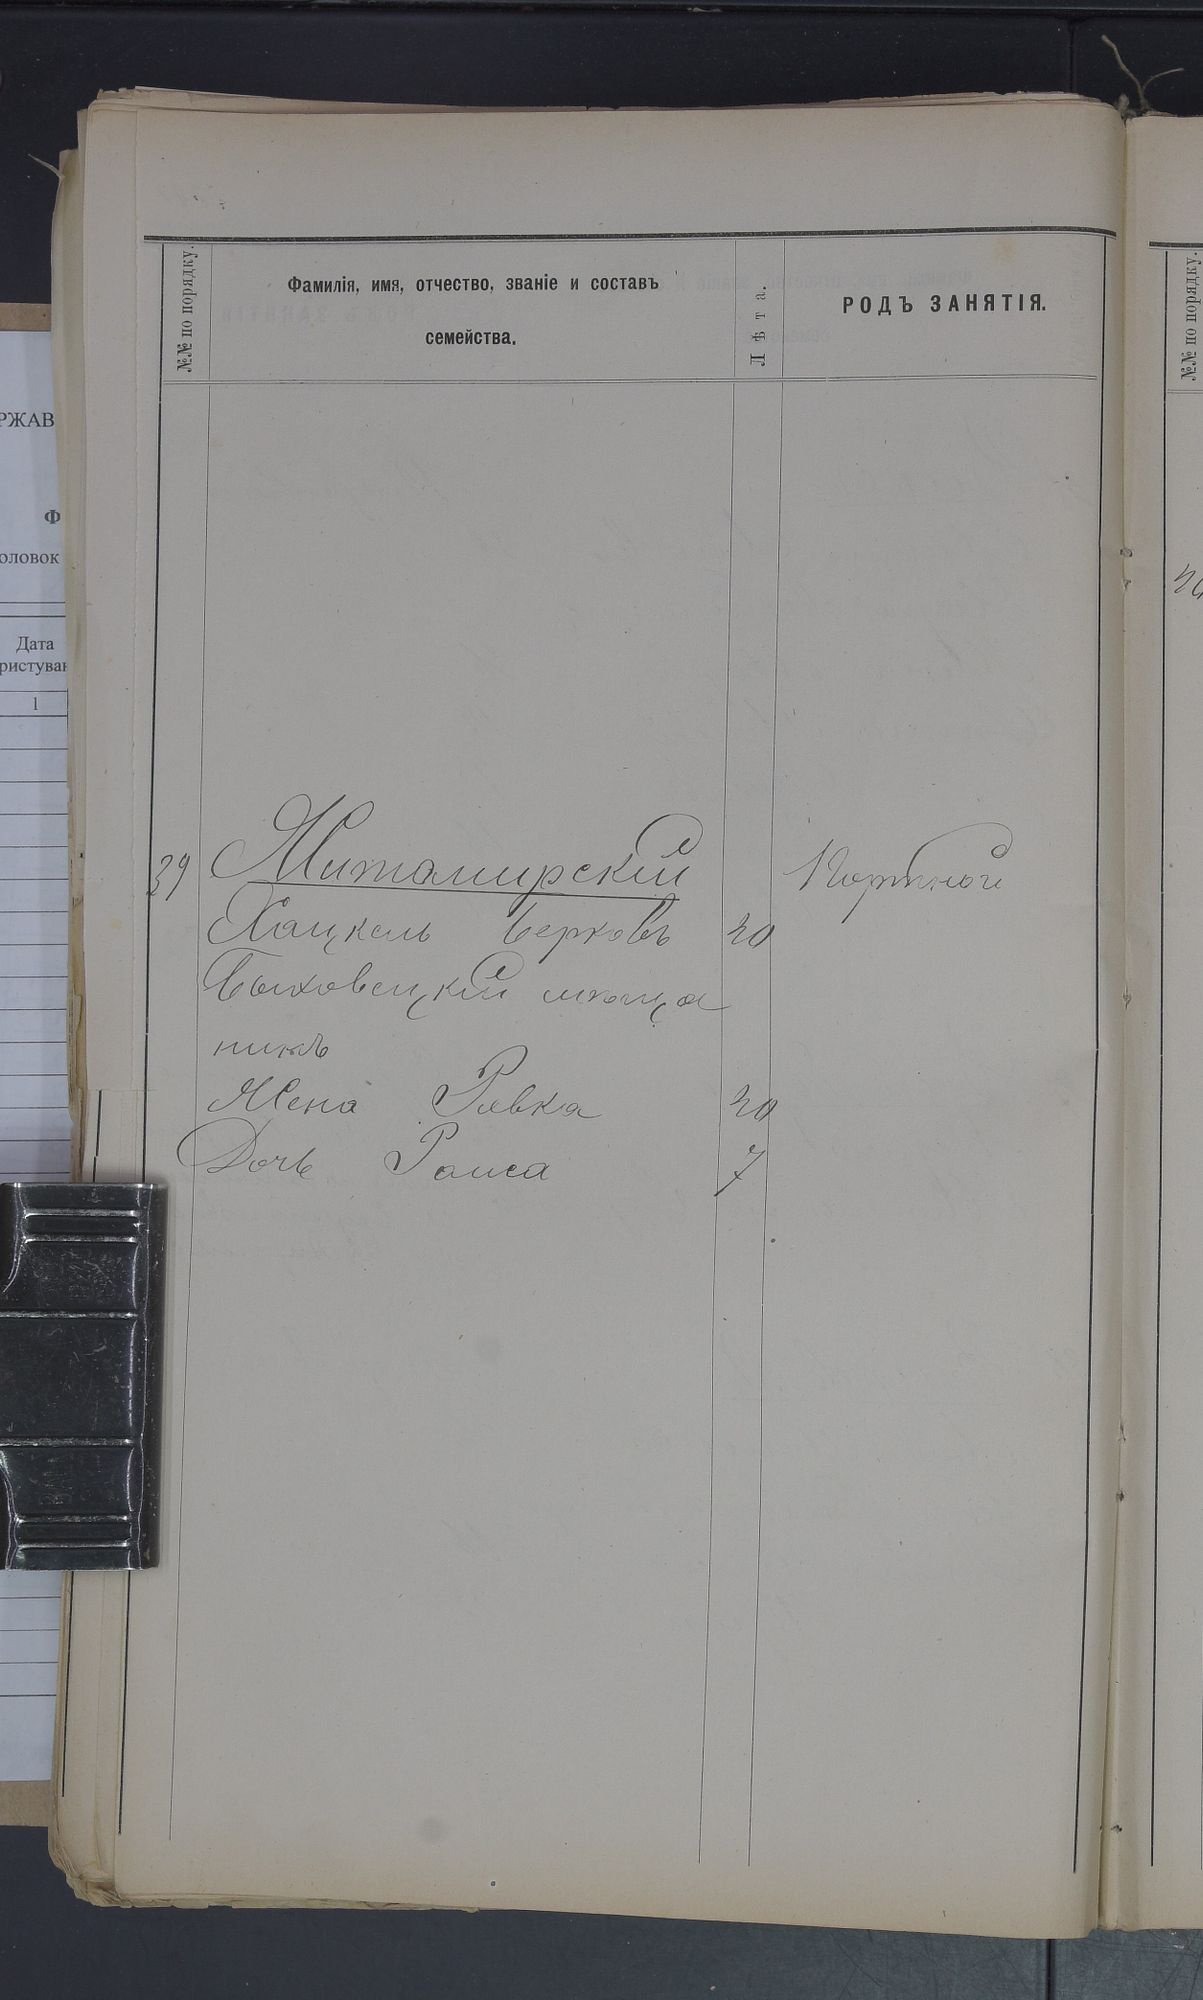 №№ по порядку.
Фамилія, имя, отчество, званіе и составъ
семейства.
Лѣта.
РОДЪ ЗАНЯТІЯ.
39 Житомирскій Портной
Хацкель Берковъ 40
Быховецкій мѣща
нинъ
Жена Ривка 40
Дочь Раиса 7
№№ по порядку.
РЖАВ
Ф
оловок
Дата
ристуван
1